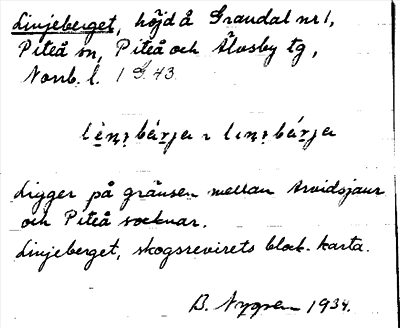 Linjeberget, höjd å Grandal nr 1,
Piteå sn, Piteå och Älvsby tg,
Norrb. l.
Ligger på gränsen mellan Arvidsjaur
och Piteå socknar.
Linjeberget, skogsrevirets block-karta.
B. Nygren 1934.